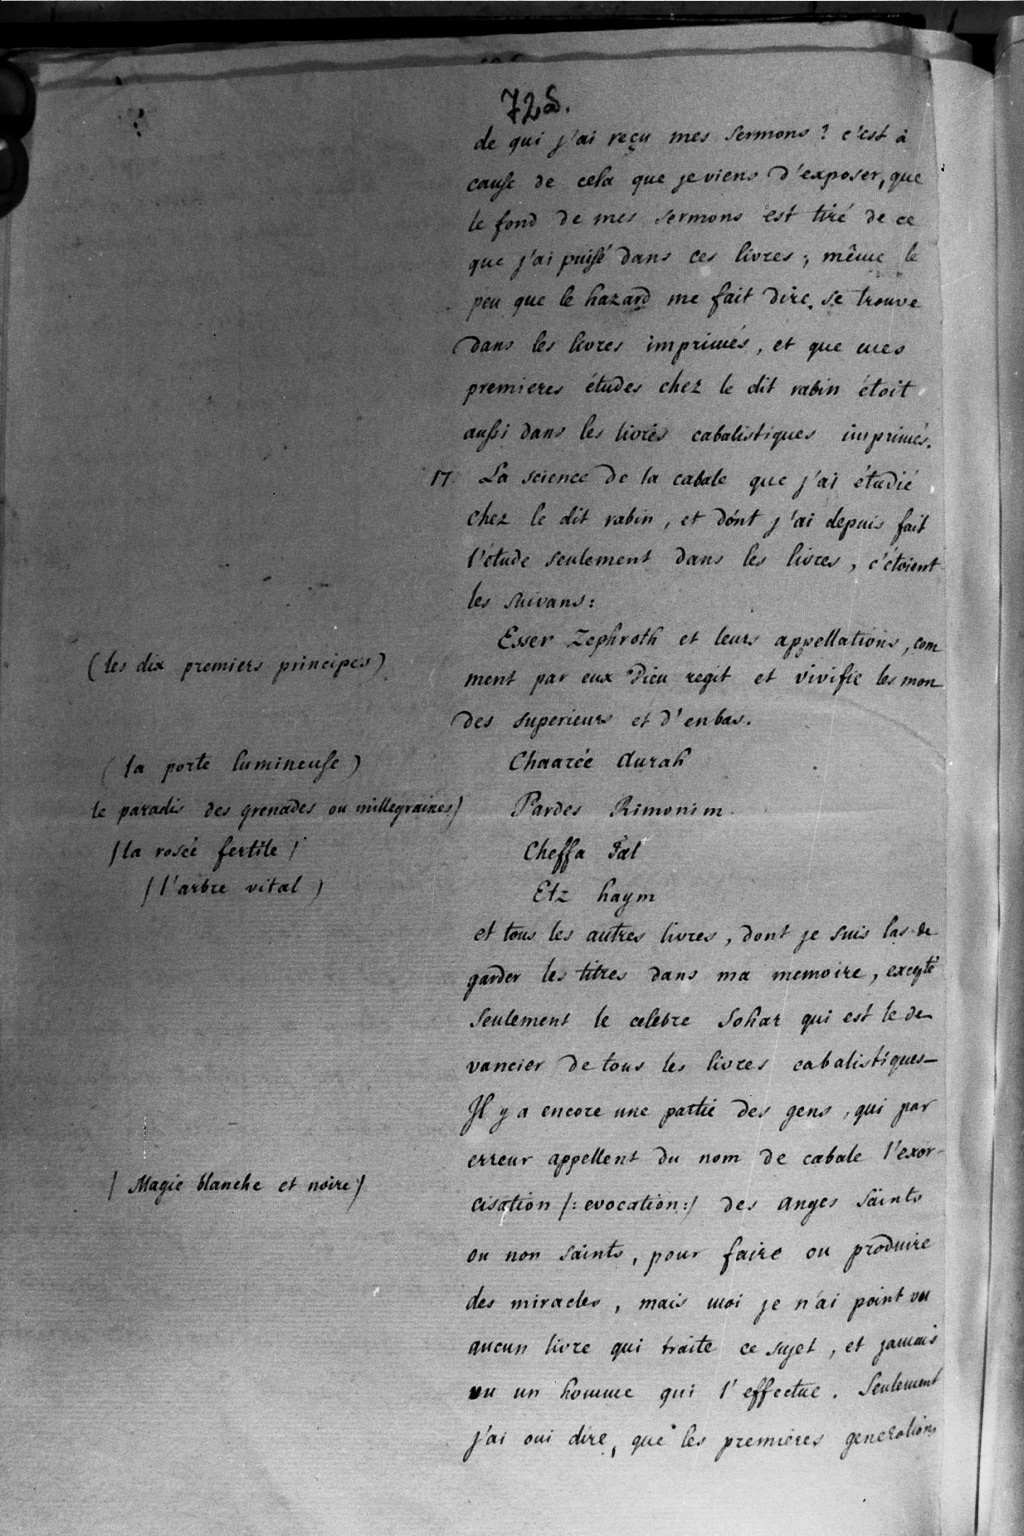 72d.
de qui j'ai reçu mes sermons? c'est à
cause de cela que je viens d'exposer, que
le fond de mes sermons est tiré de ce
que j'ai puisé dans ces livres; même le
peu que le hazard me fait dire, se trouve
dans les livres imprimés, et que mes
premieres études chez le dit rabin étoit
aussi dans les livres cabalistiques imprimés.
17 La science de la cabale que j'ai étudié
chez le dit rabin, et dont j'ai depuis fait
l'étude seulement dans les livres, c'étoient
les suivans:
Esser Zephroth et leurs appellations, com
(les dix premiers principes)
ment par eux Dieu regit et vivifie les mon
des superieurs et d'enbas.
(la porte lumineuse) Chaarée Aurah
le paradis des grenades ou millegraines) Pardes Rimonim
/la rosée fertile/ Cheffa Tal
/l'arbre vital) Etz haym
et tous les autres livres, dont je suis las de
garder les titres dans ma memoire, excepté
seulement le celebre Sohar qui est le de
vancier de tous les livres cabalistiques—
Il y a encore une partie des gens, qui par
erreur appellent du nom de cabale l'exor-
/Magie blanche et noire/
cisation /: evocation:/ des anges saints
ou non saints, pour faire ou produire
des miracles, mais moi je n'ai point vu
aucun livre qui traite ce sujet, et jamais
vu un homme qui l'effectue. Seulement
j'ai oui dire, que les premières generations